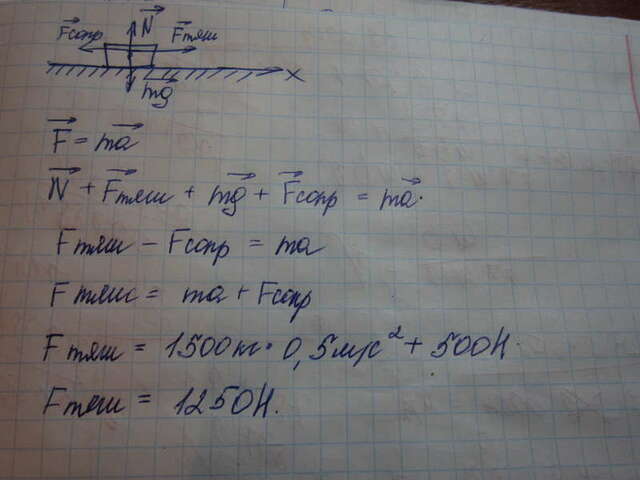 Fсопр N Fтяги
X
mg
F = ma
N + Fтяги + mg + Fсопр = ma.
Fтяги - Fсопр = ma
Fтяги = ma + Fсопр
Fтяги = 1500кг · 0,5м/с² + 500Н.
Fтяги = 1250Н.